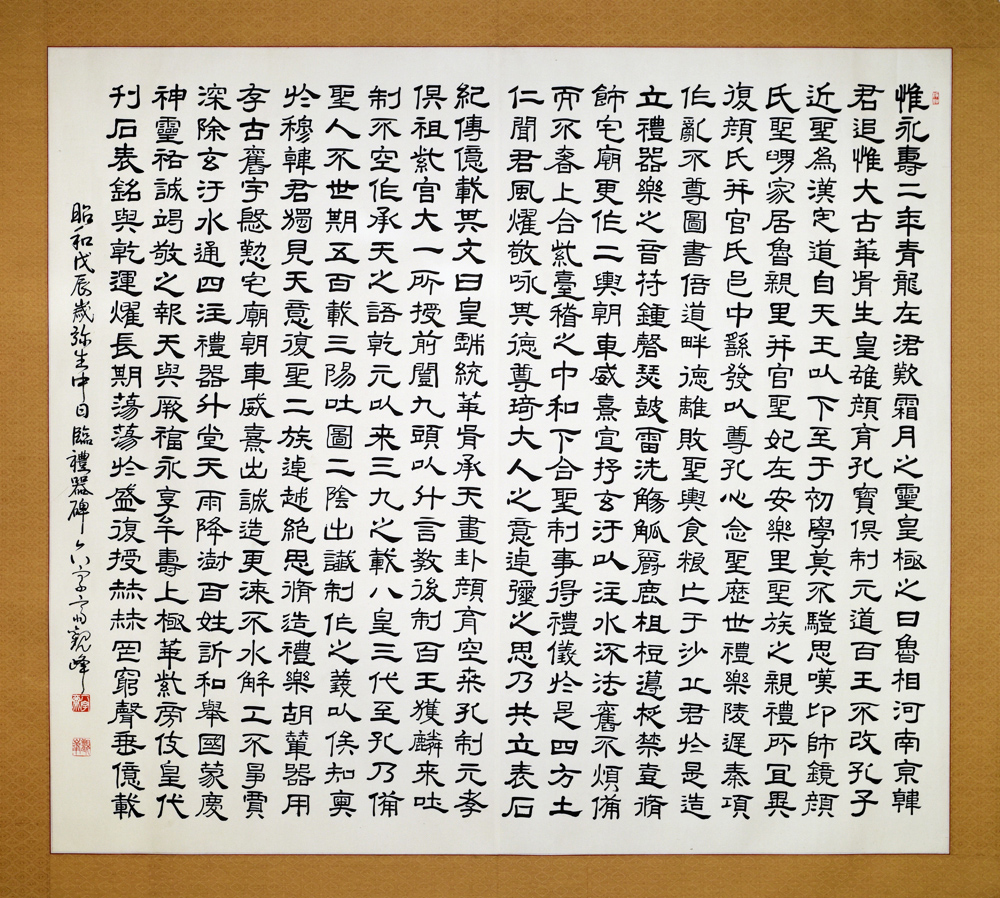 惟永壽二年青龍在涒歎霜月之靈皇極之日魯相河南京韓
君追惟大古華胥生皇雄顏育孔寶俱制元道百王不改孔子
近聖為漢定道自天王以下至于初學莫不驥思嘆卬師鏡顏
氏聖舅家居魯親里并官聖妃在安樂里聖族之親禮所宜異
復顏氏并官氏邑中繇發以尊孔心念聖歷世禮樂陵遲秦項
作亂不尊圖書倍道畔德離敗聖輿食粮亡于沙丘君於是造
立禮器樂之音苻鍾磬瑟鼓雷洗觴觚爵鹿柤梪籩柉禁壺脩
飾宅廟更作二輿朝車威熹宣抒玄汙以注水流法舊不煩備
而不奢上合紫臺稽之中和下合聖制事得禮儀於是四方土
仁聞君風燿敬咏其德尊琦大人之意逴彌之思乃共立表石
紀傳億載其文曰皇戲統華胥承天畫卦顏育空桑孔制元孝
俱祖紫宮大一所授前闓九頭以升言教後制百王獲麟來吐
制不空作承天之語乾元以來三九之載八皇三代至孔乃備
聖人不世期五百載三陽吐圖二陰出讖制作之義以俟知奧
於穆韓君獨見天意復聖二族逴越絕思脩造禮樂胡輦器用
存古舊宇慇懃宅廟朝車威熹出誠造更漆不水解工不爭賈
深除玄汙水通四注禮器升堂天雨降澍百姓訢和舉國蒙慶
神靈祐誠竭敬之報天與厥福永享牟壽上極華紫旁伎皇代
刊石表銘與乾運燿長期蕩蕩於盛復授赫赫罔窮聲垂億載
昭和戊辰歲弥生中日臨禮器碑 觀峰